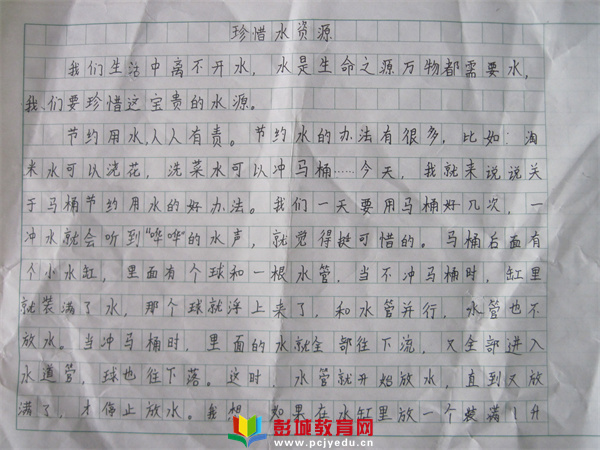 珍惜水资源
我们生活中离不开水，水是生命之源万物都需要水，
我们要珍惜这宝贵的水源。
节约用水，人人有责。节约水的办法有很多，比如：淘
米水可以浇花，洗菜水可以冲马桶……今天，我就来说说关
于马桶节约用水的好办法。我们一天要用马桶好几次，一
冲水就会听到“哗哗”的水声，就觉得挺可惜的。马桶后面有
个小水缸，里面有个球和一根水管，当不冲马桶时，缸里
就装满了水，那个球就浮上来了，和水管并行，水管也不
放水。当冲马桶时，里面的水就全部往下流，又全部进入
水道管，球也往下落。这时，水管就开始放水，直到又放
满了，才停止放水。我想，如果在水缸里放一个装满1升
彭城教育网
www.pcjyedu.cn